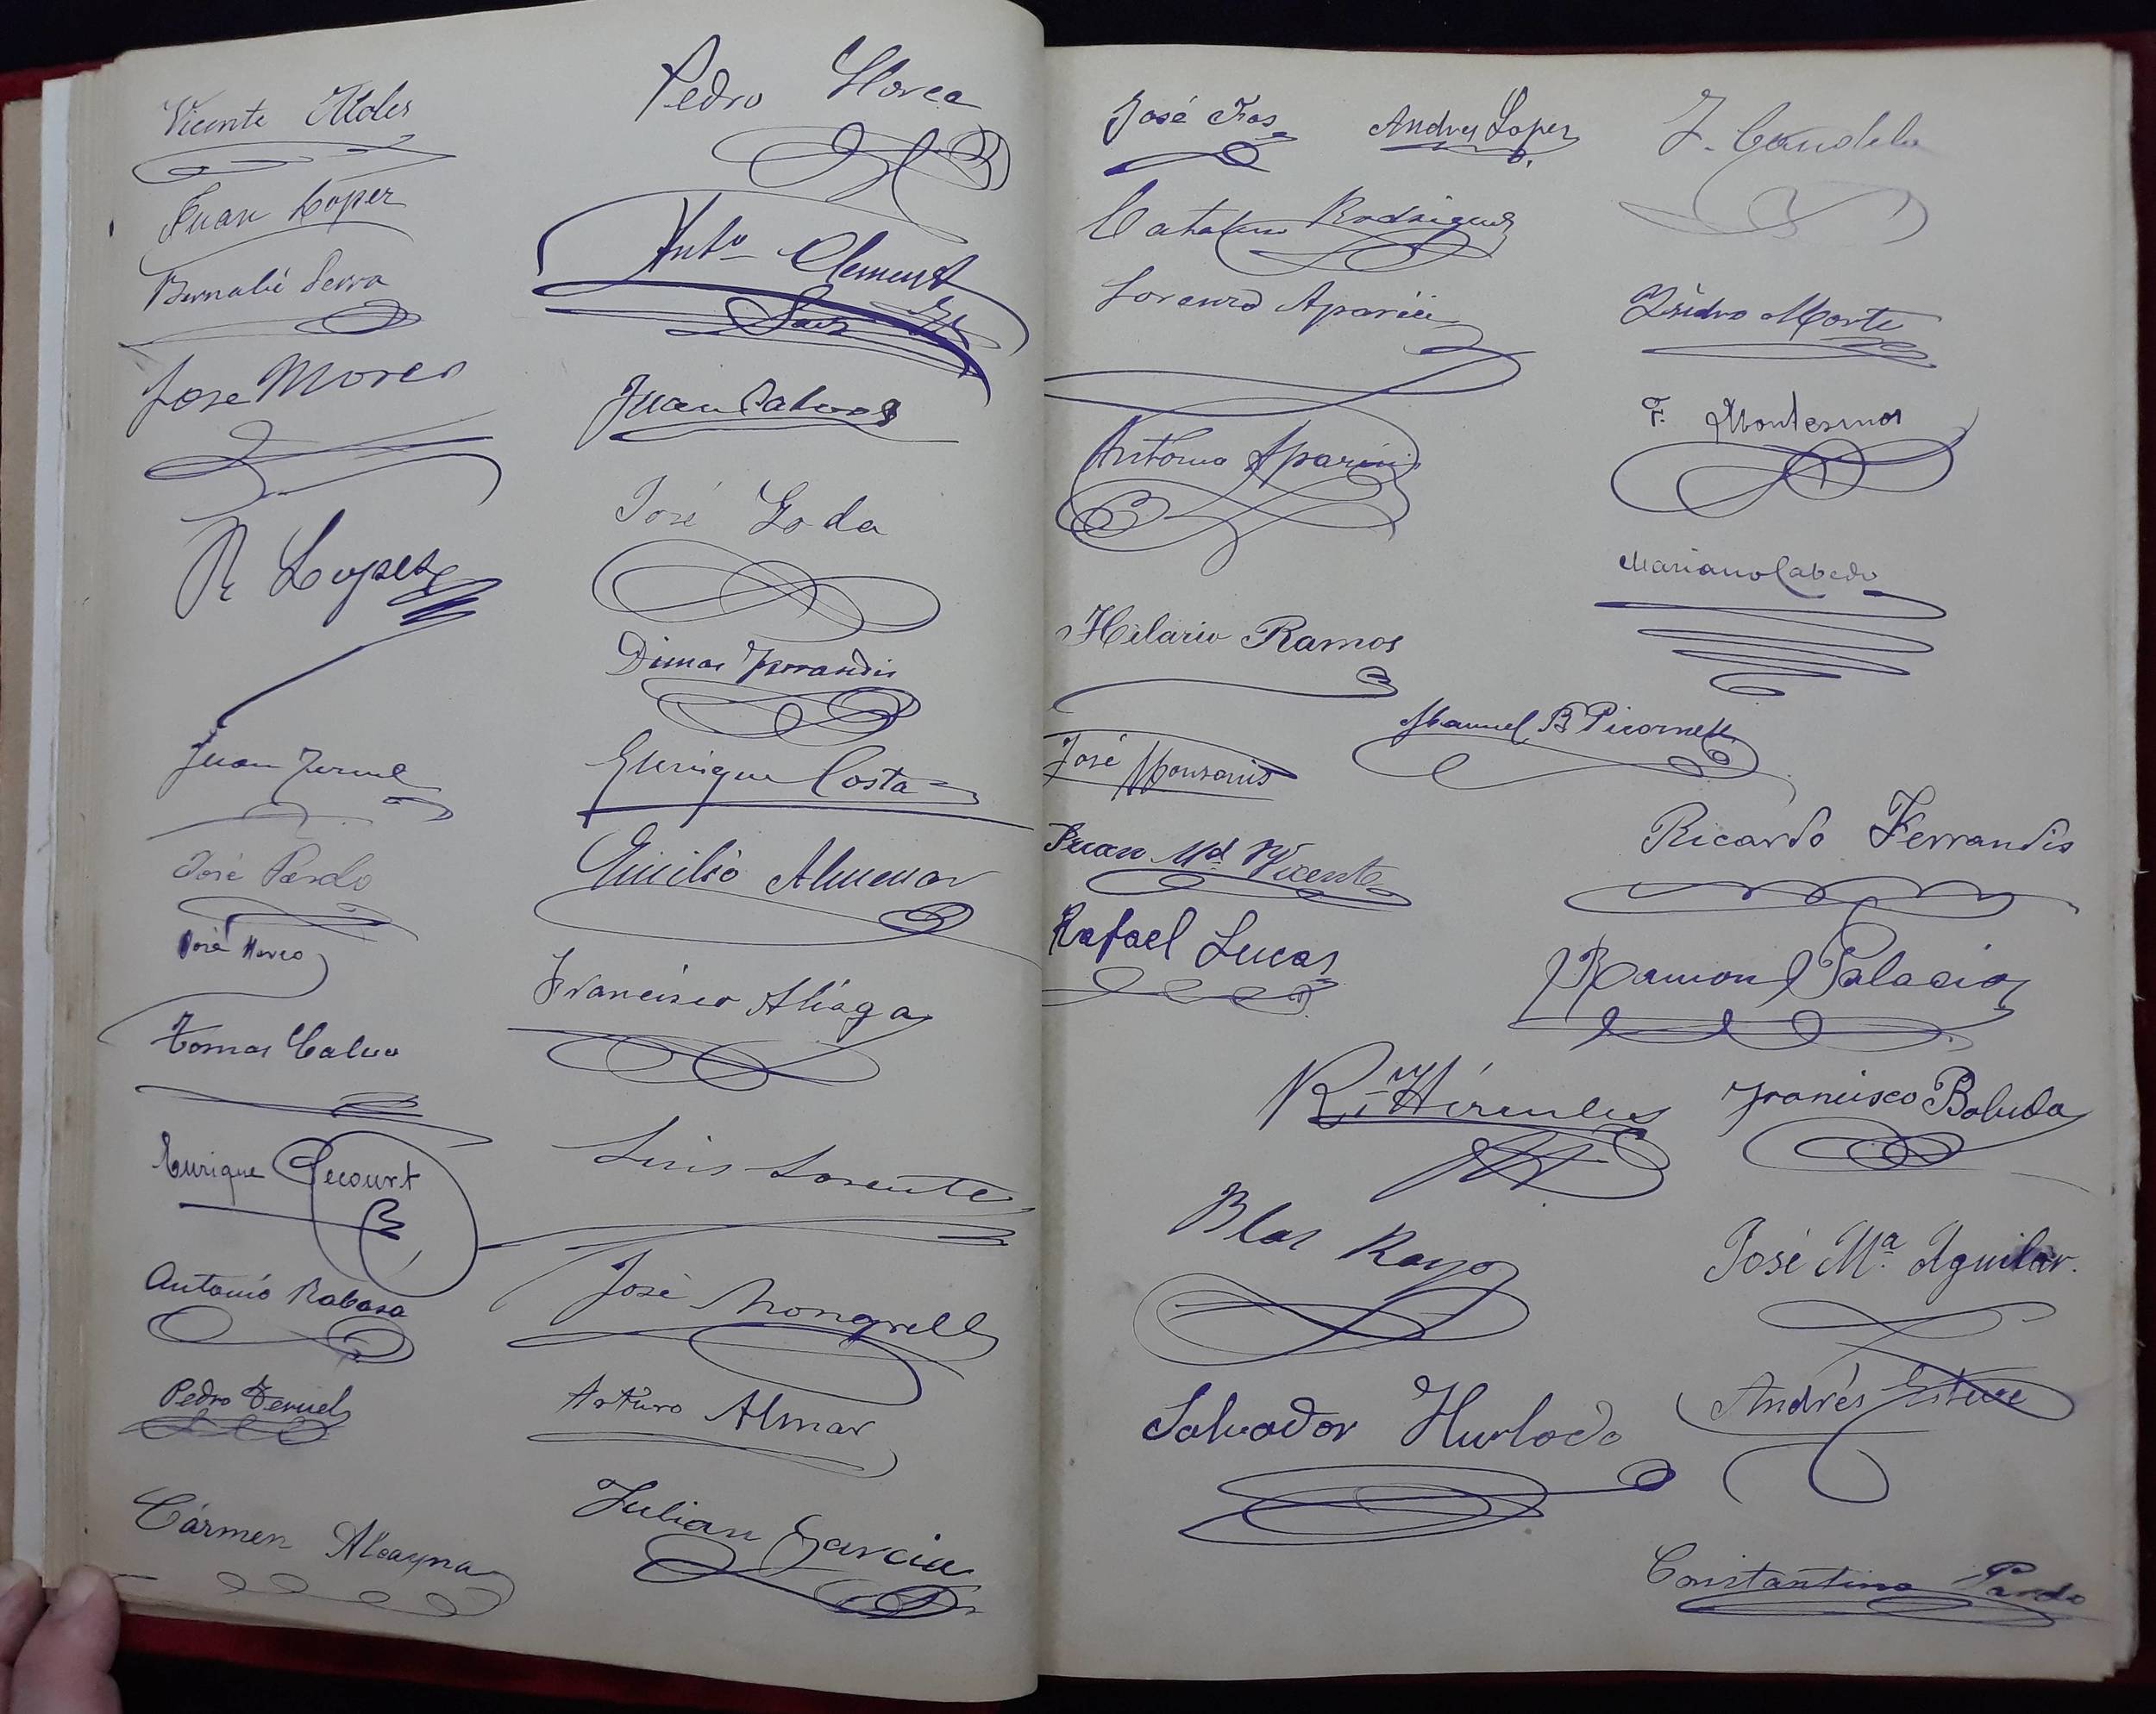 Vicente Moles
Juan Lopez
Bernabé Serra
Jose
R Lopez
Juan Teruel
José Pardo
José
Tomas Calvo
Enrique Gecourt
Antonio Rabasa
Pedro Teruel
Cármen Alcayna
Pedro Llorca
Antº Clement
Juan
José Goda
Dimas Ferrandis
Enrique Costa
Emilio Almenar
Francisco Aliaga
Luis Lorente
José Mongrell
Arturo Almar
Julian Garcia
José Andres Lopez J. Candela
Catalan Rodriguez
Lorenzo Aparici Isidro Morte
Antonio Aparici F. Montesinos
Mariano Cabedo
Hilario Ramos
Manuel B Picornell
José Monsonis
Ricardo Ferrandis
Juan Mª Vicente
Rafael Lucas Ramon Palacios
R. Francisco Boluda
Blas Rayo José Mª Aguilar.
Salvador Hurtado Andrés Esteve
Constantino Pardo